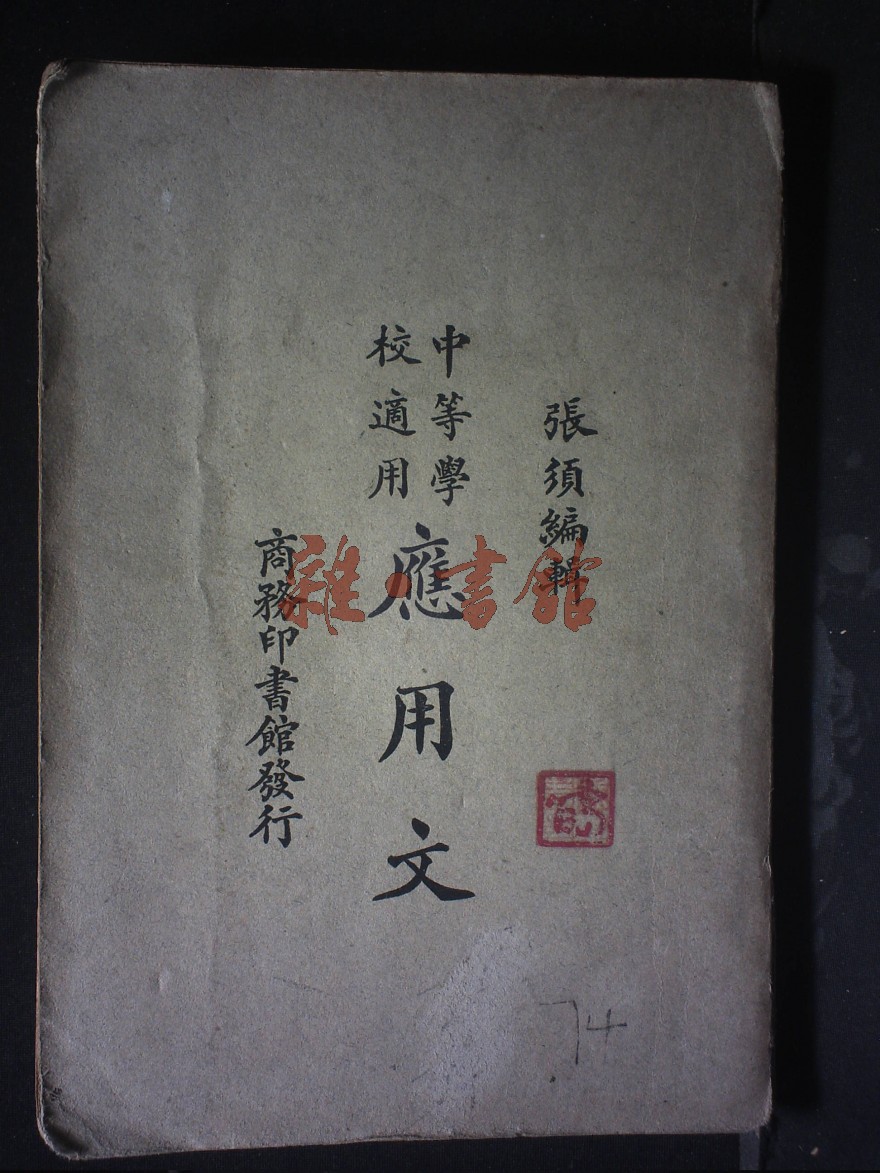 張須編輯
中等學
校適用
應用文
商務印書館發行
雜·書館
74